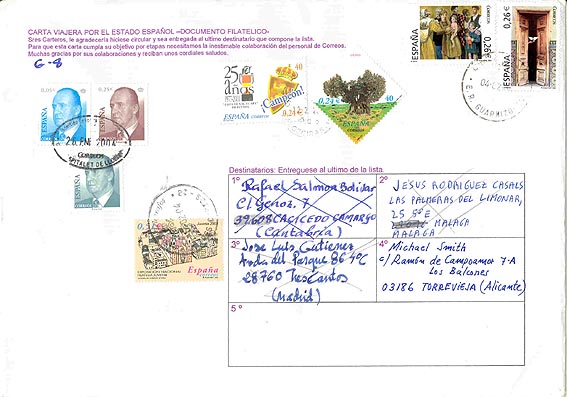 CARTA VIAJERA POR EL ESTADO ESPAÑOL -DOCUMENTO FILATELICO-
Sres Carteros, le agradecería hiciese circular y sea entregada al ultimo destinatario que compone la lista.
Para que esta carta cumpla su objetivo por etapas necesitamos la inestimable colaboración del personal de Correos.
Muchas gracias por sus colaboraciones y reciban unos cordiales saludos.
G-8
0,26 €
ESPAÑA
0,26 €
ESPAÑA
0,05 €
0,25 €
25
años
¡Campeon!
40
0,24 €
ESPAÑA
40
0,24 €
ESPAÑA
26 ENE 2004
CORREOS
ESPAÑA
EXPOSICIÓN NACIONAL
España
Destinatarios: Entreguese al ultimo de la lista.
1º
Rafael Salmon Bolivar
C/ Genoz. 7
39608 CACICEDO CAMARGO
(Cantabria)
2º
JESUS RODRIGUEZ CASALS
LAS PALMERAS DEL LIMONAR,
25 5º E
MALAGA
MALAGA
3º
Jose Luis Gutierrez
Avda del Parque 86 4ºC
28760 Tres Cantos
(Madrid)
4º
Michael Smith
c/ Ramón de Campoamor 7-A
Los Balcones
03186 TORREVIEJA (Alicante)
5º